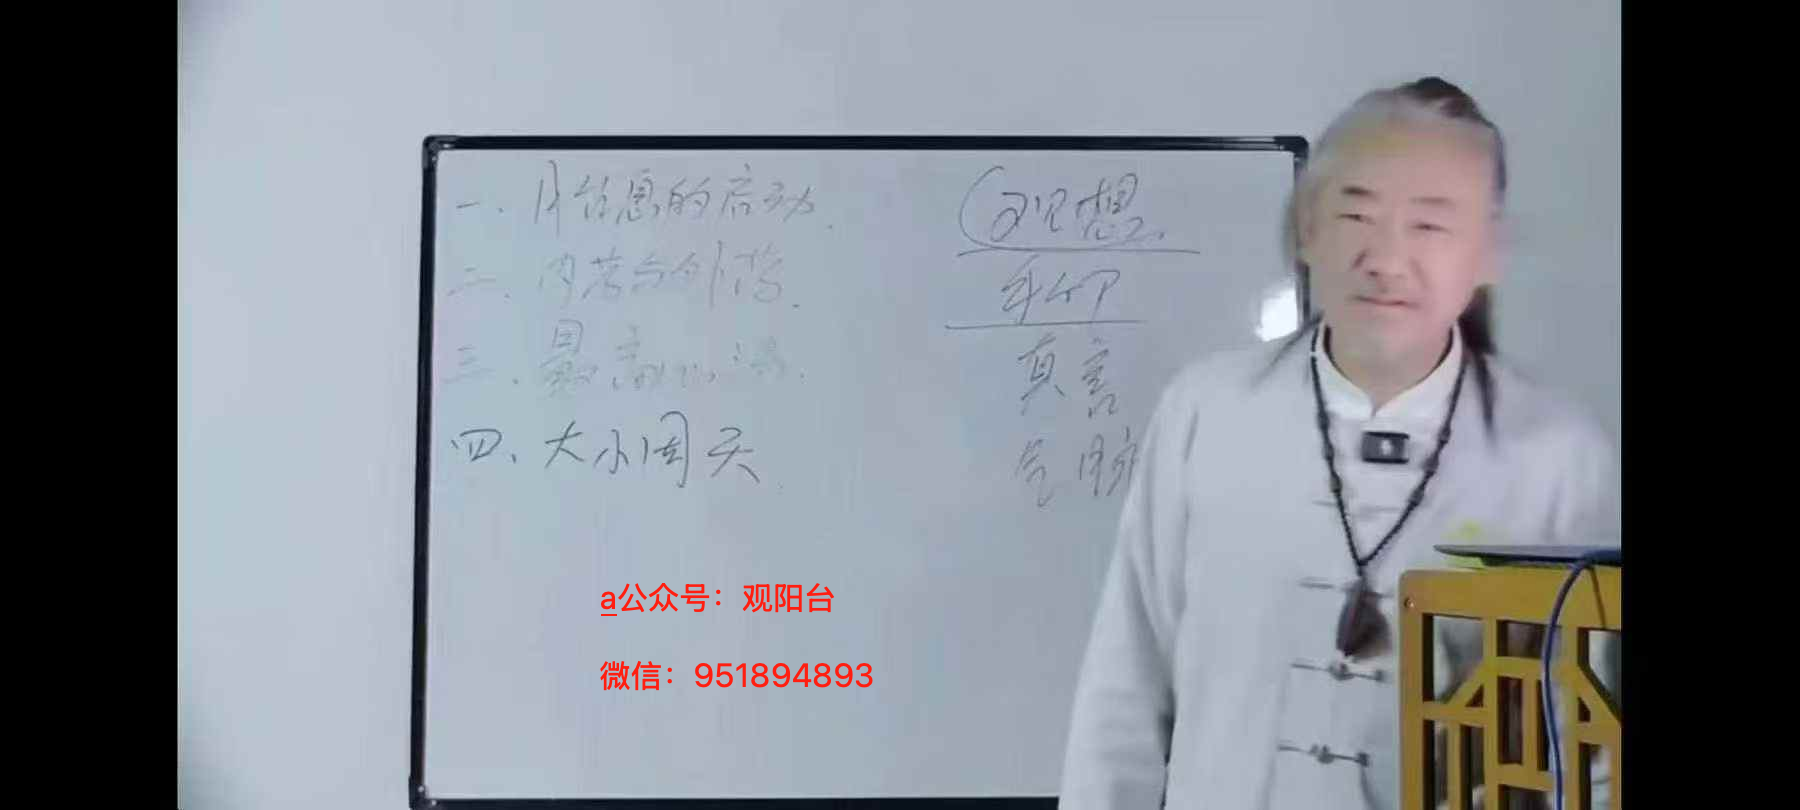 一. 体信息的启动.
二. 内营与外营.
三. 最高心法.
四、大小周天.
观想.
手印
真言
气脉
a公众号：观阳台
微信：951894893